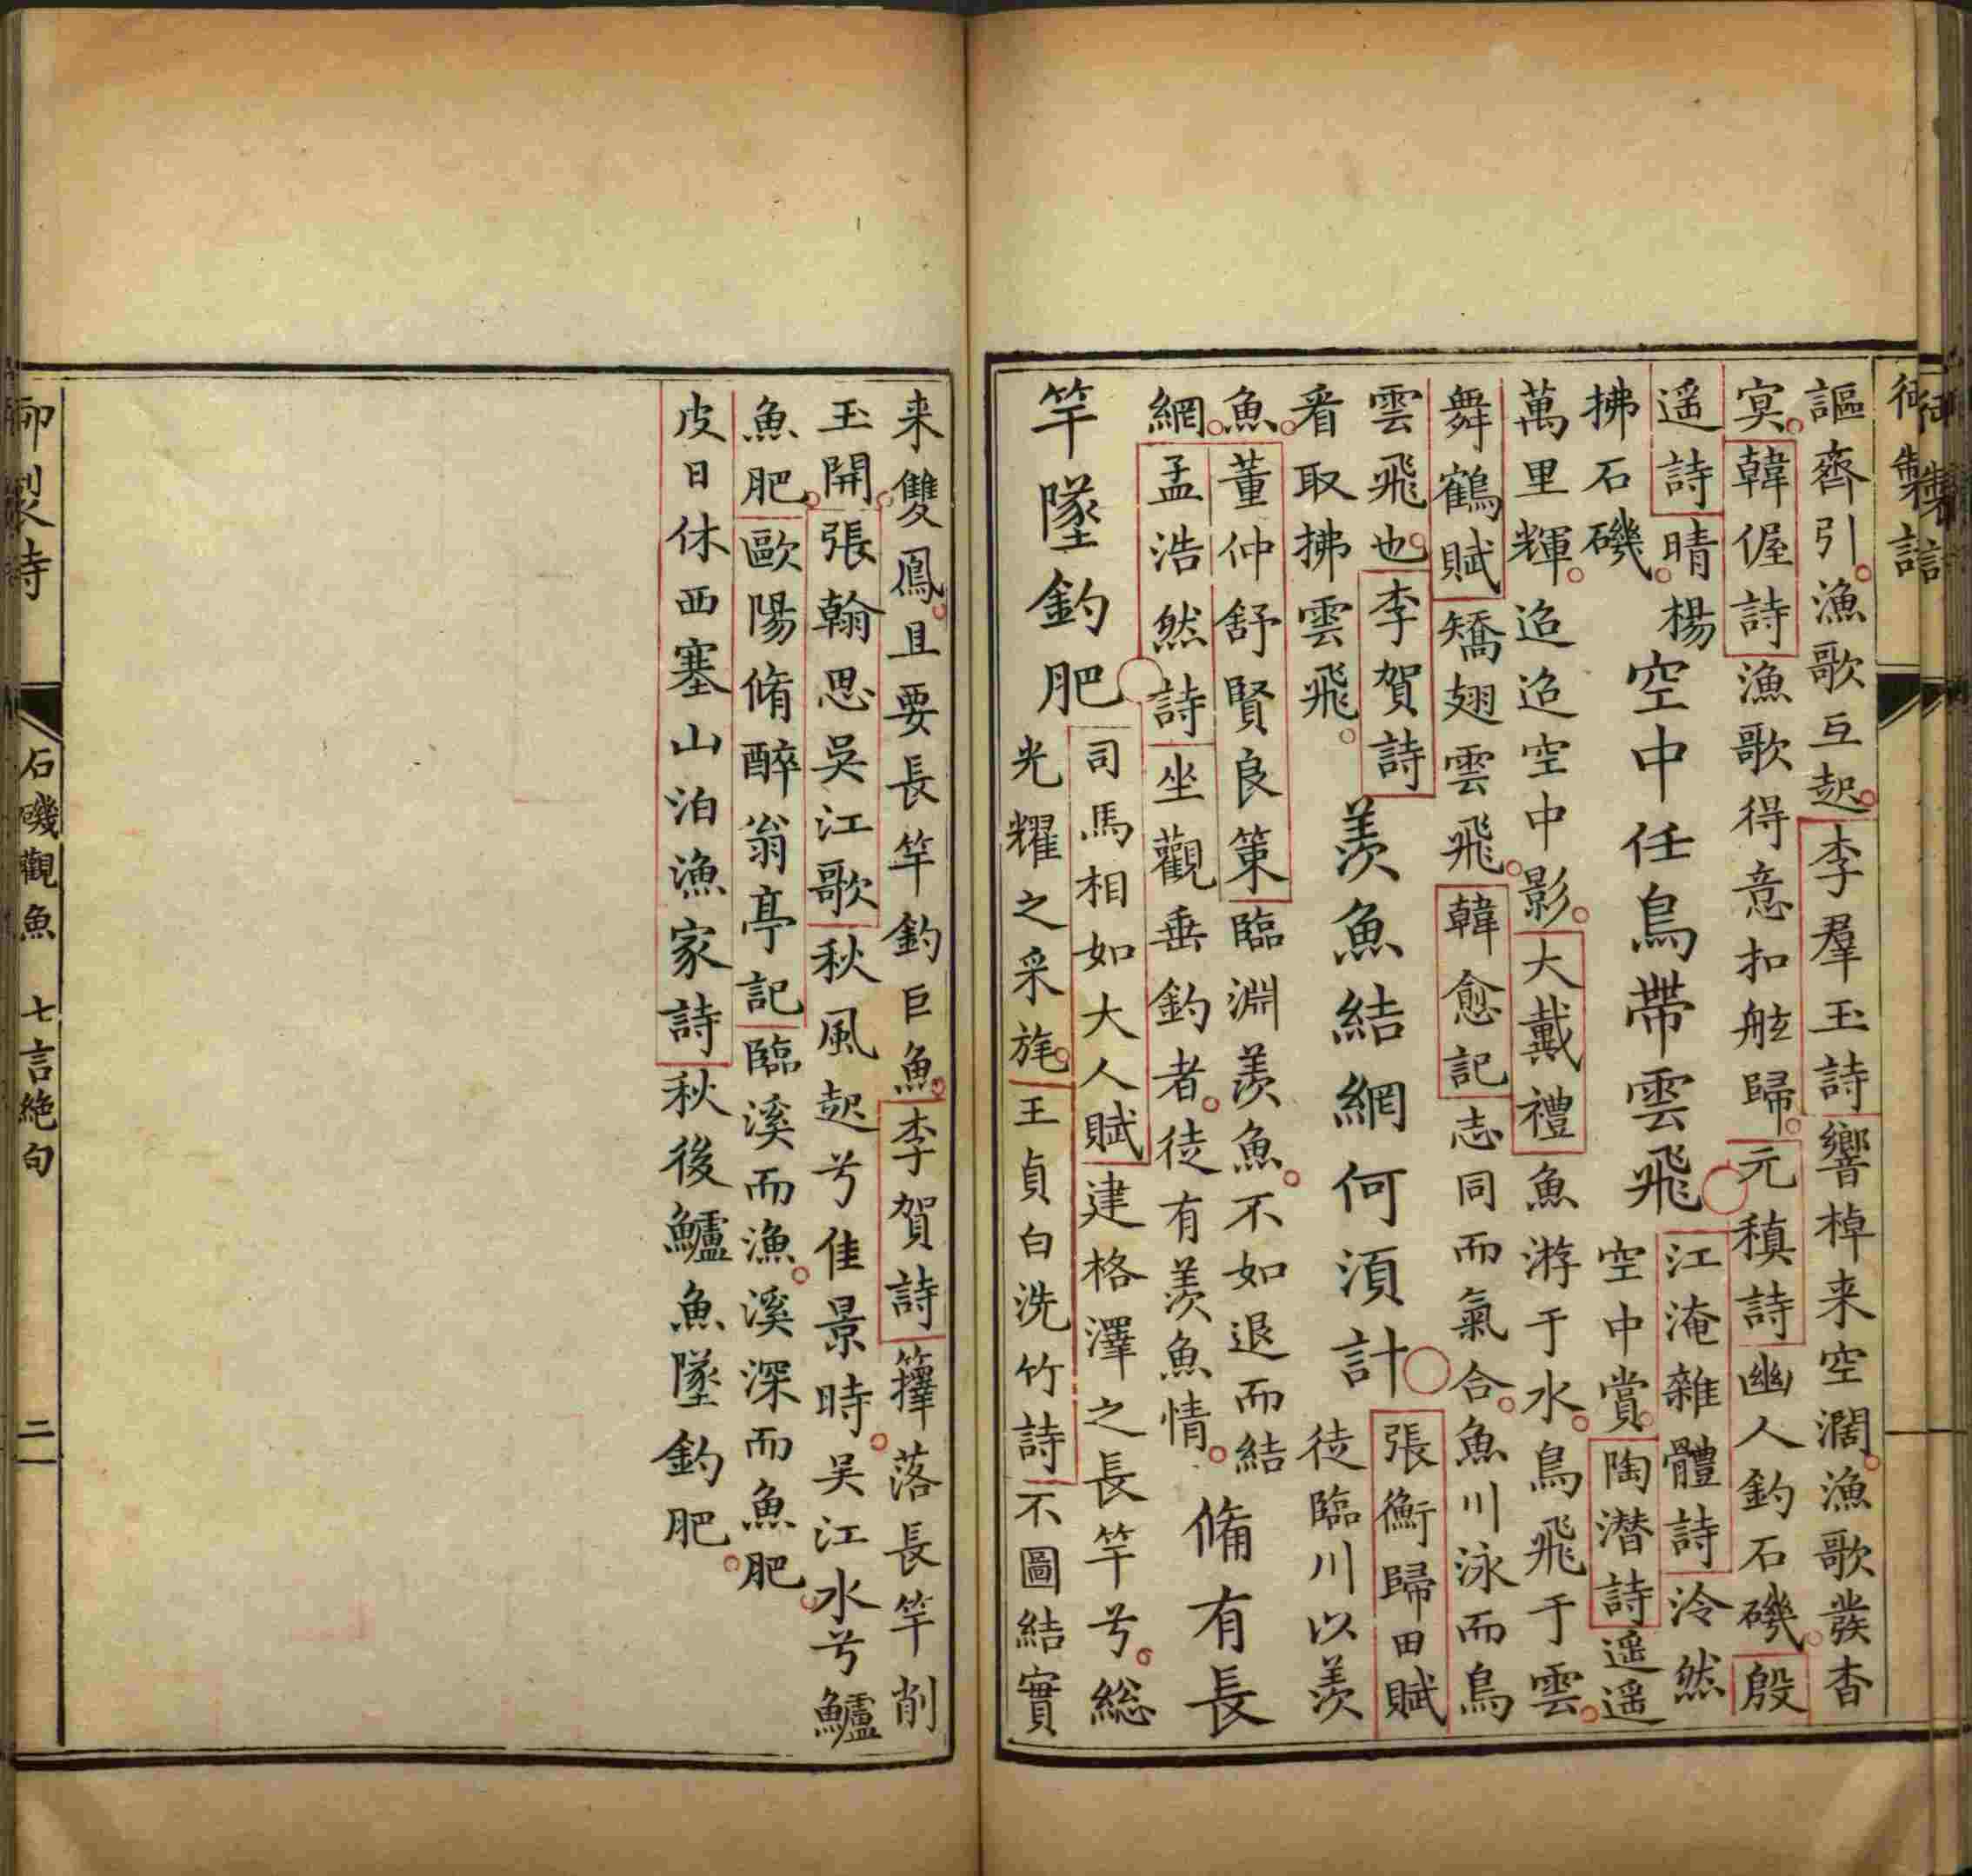 御製詩
謳齊引漁歌互起李羣玉詩響棹来空濶漁歌發杳
冥韓偓詩漁歌得意扣舷歸元稹詩幽人釣石磯殷
遥詩晴楊
拂石磯
空中任鳥帶雲飛
江淹雜體詩泠然
空中賞陶潜詩遥遥
萬里輝迢迢空中影大戴禮魚游于水鳥飛于雲
舞鶴賦矯翅雲飛韓愈記志同而氣合魚川泳而鳥
雲飛也李賀詩
看取拂雲飛
羨魚結網何湏計
張衡歸田賦
徒臨川以羨
魚董仲舒賢良策臨淵羨魚不如退而結
網孟浩然詩坐觀垂釣者徒有羨魚情
脩有長
竿墜釣肥
司馬相如大人賦建格澤之長竿兮総
光耀之采旄王貞白洗竹詩不圖結實
来雙鳳且要長竿釣巨魚李賀詩籜落長竿削
玉開張翰思吳江歌秋風起兮佳景時吳江水兮鱸
魚肥歐陽脩醉翁亭記臨溪而漁溪深而魚肥
皮日休西塞山泊漁家詩秋後鱸魚墜釣肥
御製詩 石磯觀魚 七言絶句 二